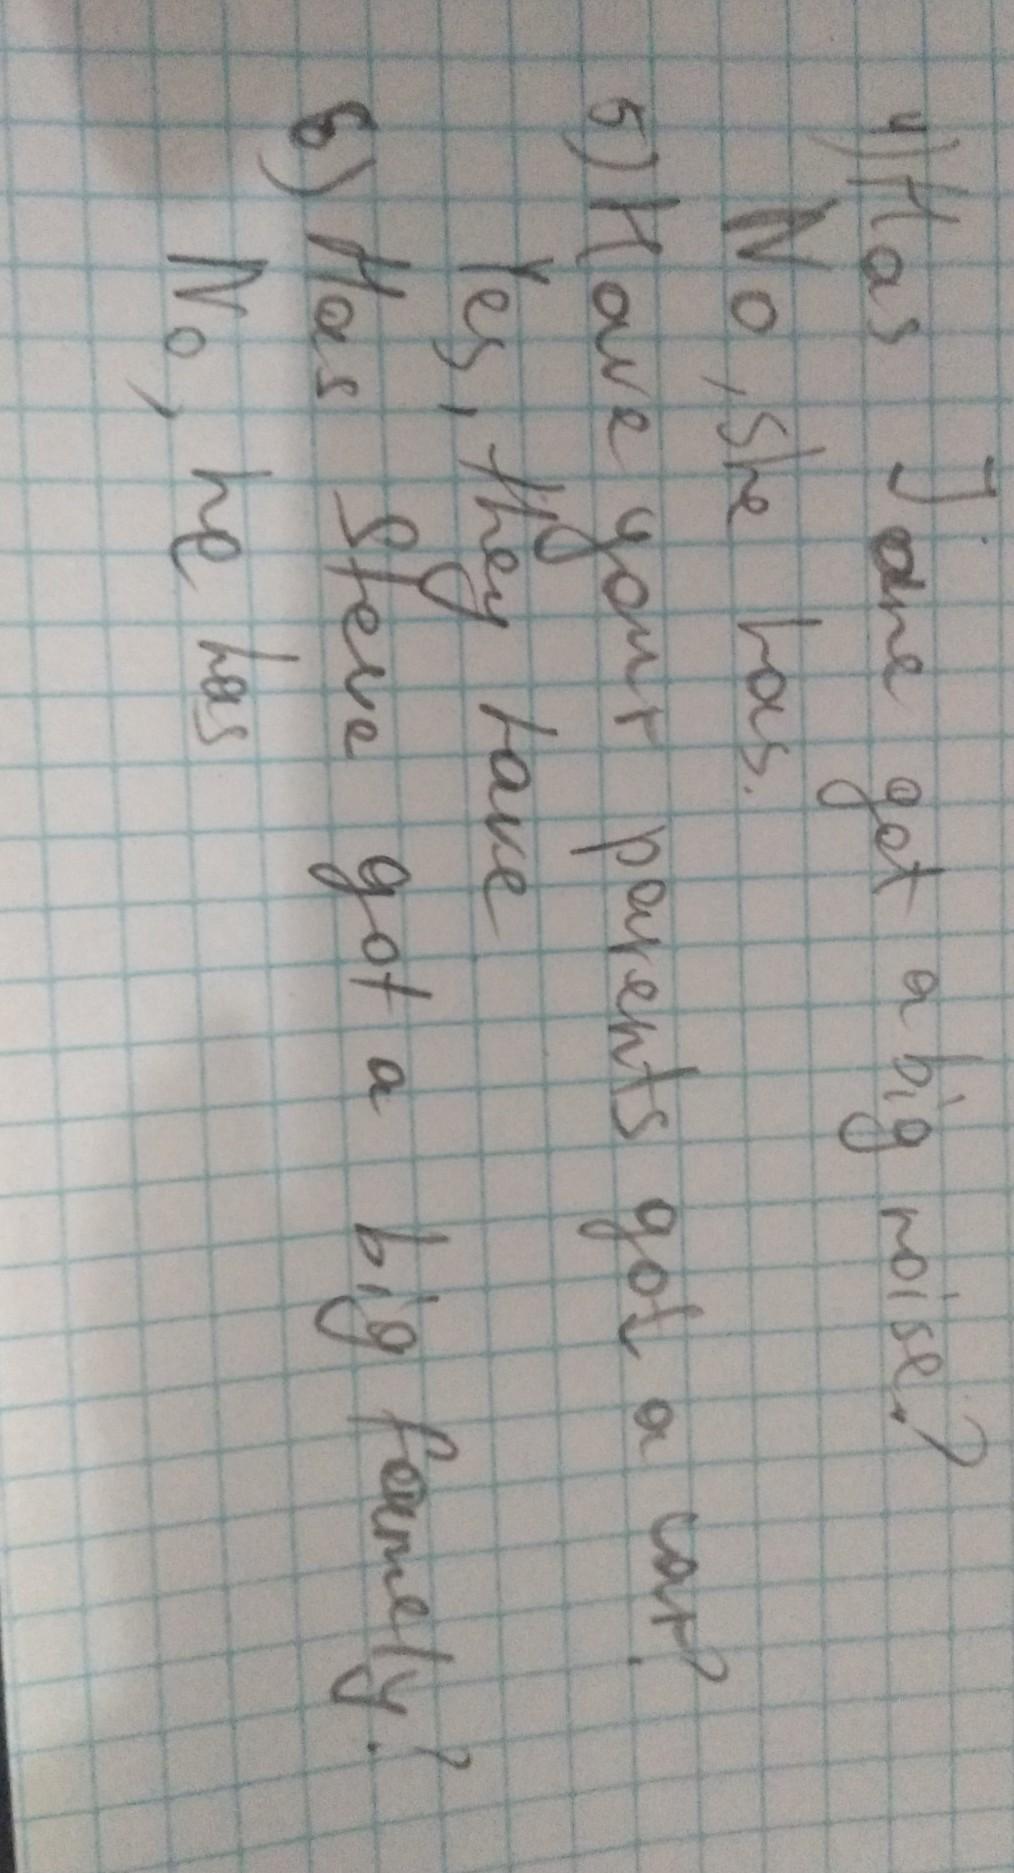 4) Has Jane got a big noise?
No, she has.
5) Have your parents got a car?
Yes, they have
6) Has Steve got a big famely?
No, he has